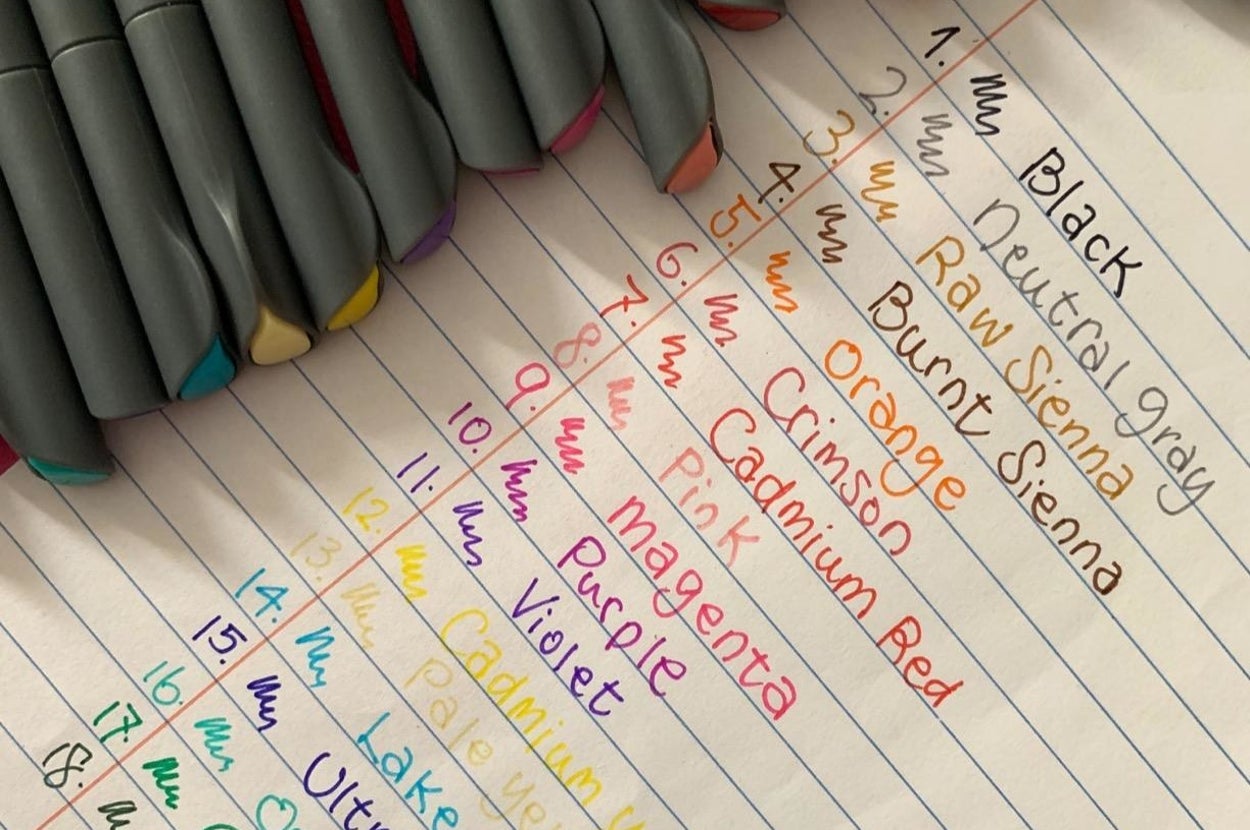 1. Black
2. neutral gray
3. Raw Sienna
4. Burnt Sienna
5. Orange
6. Crimson
7. Cadmium Red
8. Pink
9. magenta
10. Purple
11. Violet
12. Cadmium
13. Pale
14. Lake
15.
16.
17.
18.